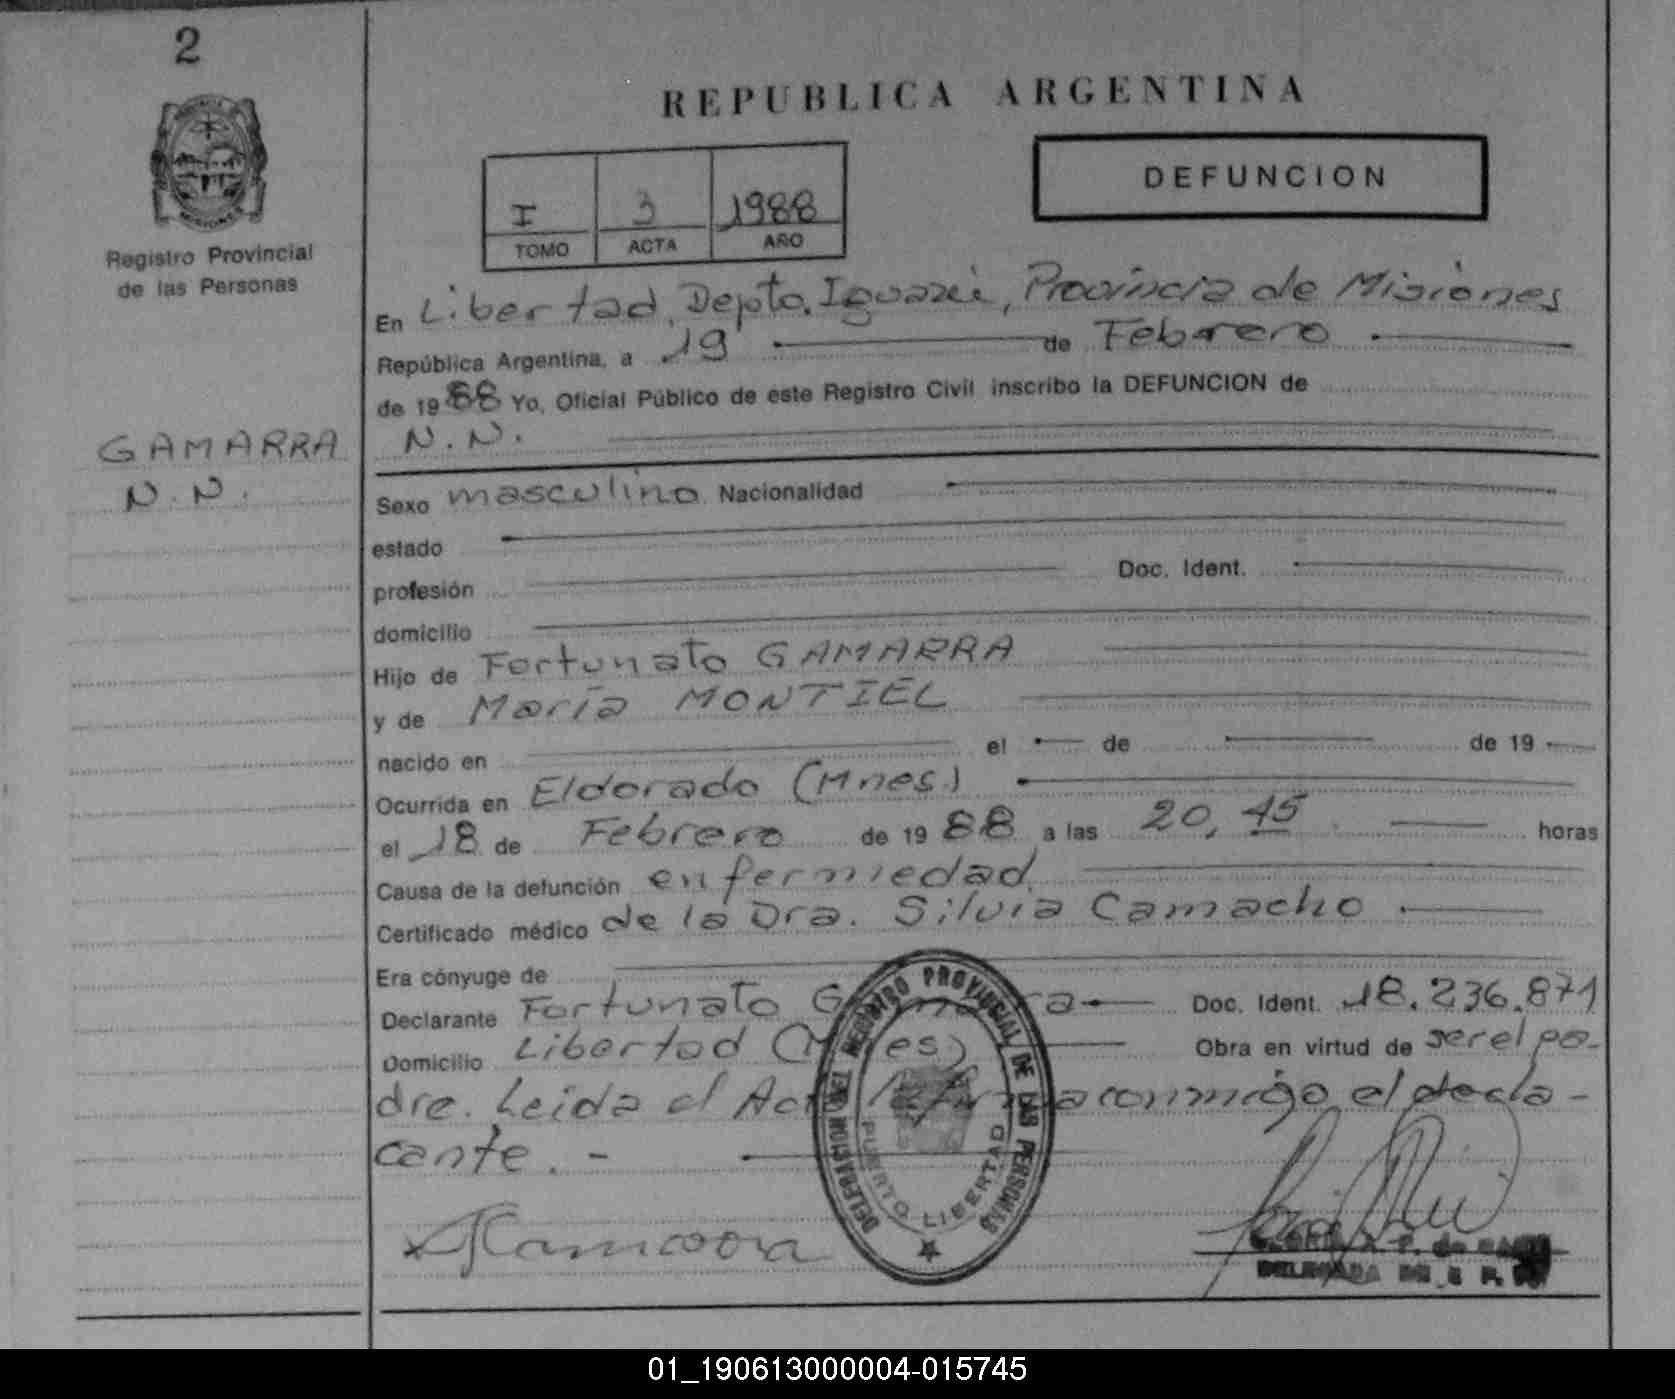 2
MISIONES
Registro Provincial
de las Personas
GAMARRA
N.N.
REPUBLICA ARGENTINA
DEFUNCION
I 3 1988
TOMO ACTA AÑO
En Libertad, Depto. Iguazú, Provincia de Misiones
República Argentina, a 19 de Febrero
de 1988 Yo, Oficial Público de este Registro Civil inscribo la DEFUNCION de
N.N.
Sexo masculino Nacionalidad
estado
profesión Doc. Ident.
domicilio
Hijo de Fortunato GAMARRA
y de María MONTIEL
nacido en el de de 19
Ocurrida en Eldorado (Mnes)
el 18 de Febrero de 1988 a las 20,45 horas
Causa de la defunción enfermedad
Certificado médico de la Dra. Silvia Camacho
Era cónyuge de
Declarante Fortunato Gamarra Doc. Ident. 18.236.871
Domicilio Libertad (Mnes) Obra en virtud de ser el pa-
dre. Leida el Acta firma conmigo el decla-
rante. -
DELEGACION DEL REGISTRO PROVINCIAL DE LAS PERSONAS
PUERTO LIBERTAD
DELEGADA
01_190613000004-015745